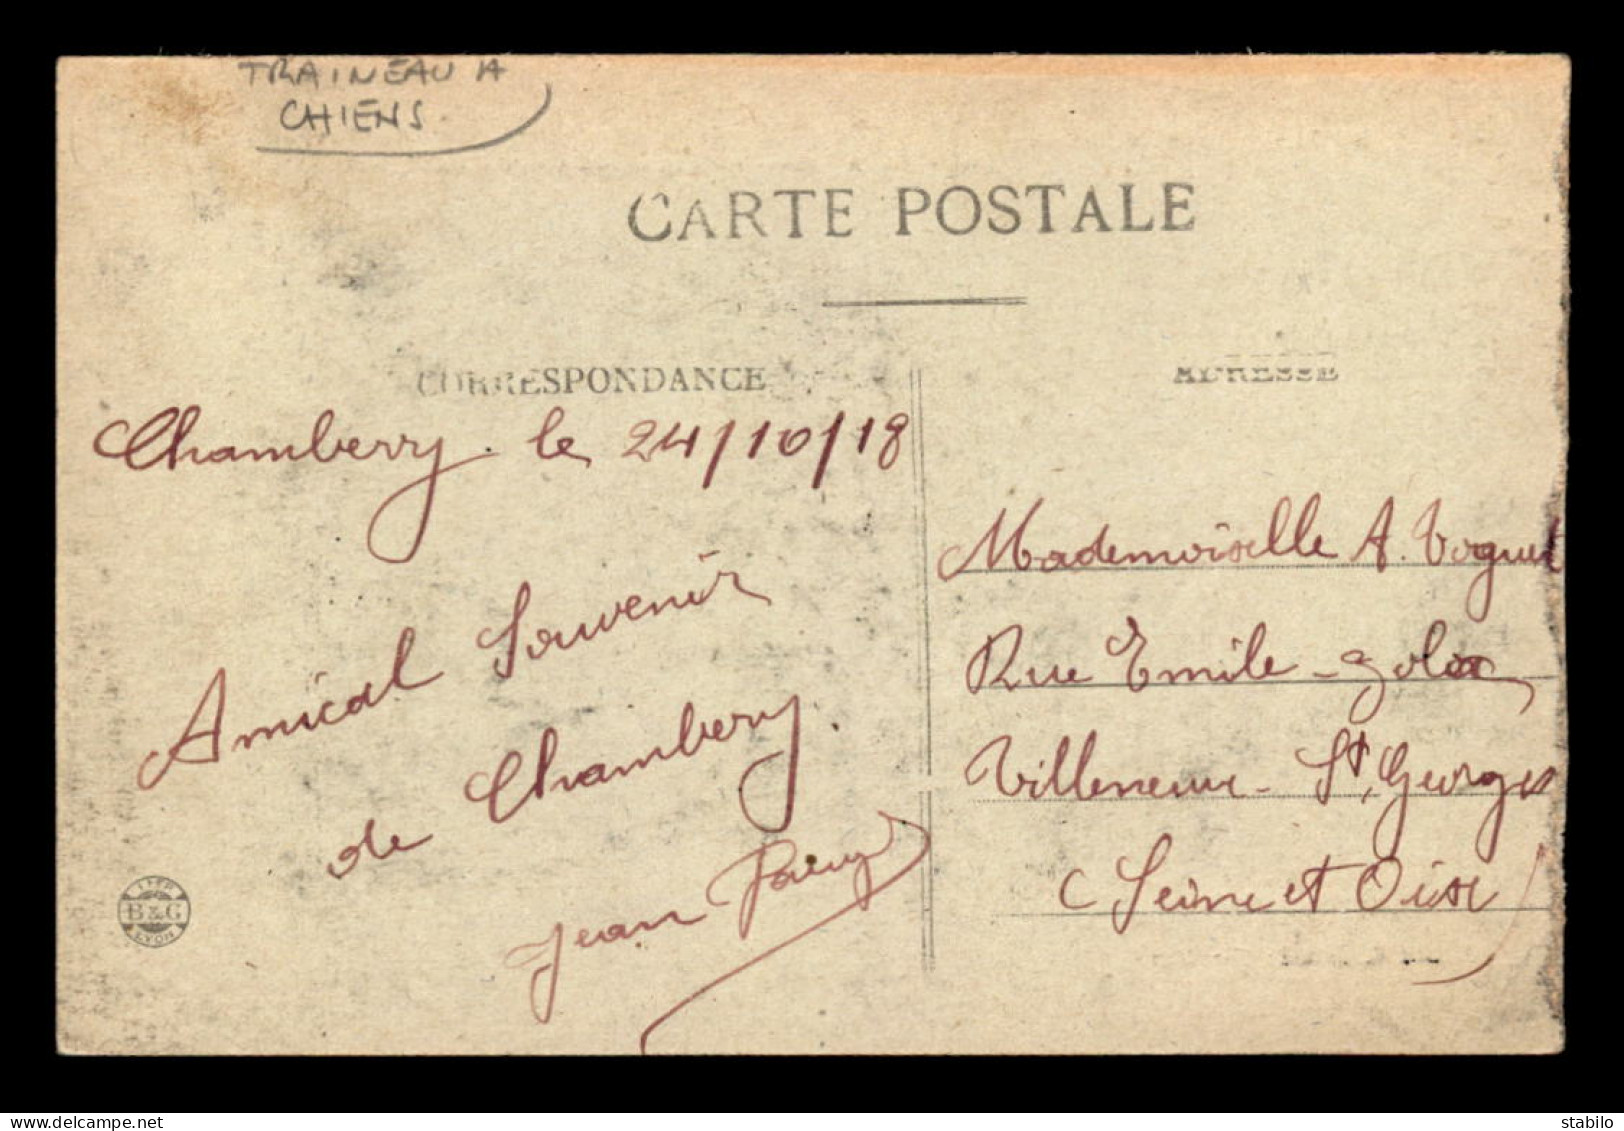 TRAINEAU A
CHIENS
CARTE POSTALE
CORRESPONDANCE
ADRESSE
Chambery. le 24/10/18
Amical Souvenir
de Chambery.
Jean
Mademoiselle A.
Rue Emile-Zola
Villeneuve-St Georges
(Seine et Oise)
IMP
B & G
LYON
delcampe.net
stabilo